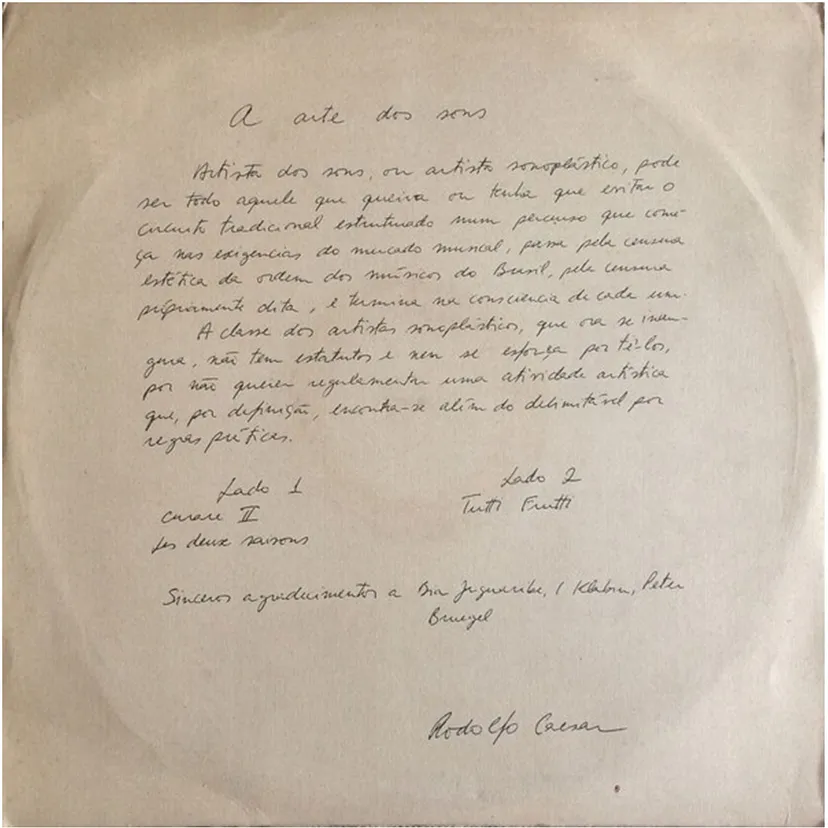 A arte dos sons
Artista dos sons, ou artista sonoplástico, pode
ser todo aquele que queira ou tenha que evitar o
circuito tradicional estruturado num percurso que come-
ça nas exigencias do mercado musical, passa pela censura
estética da ordem dos músicos do Brasil, pela censura
própriamente dita, e termina na consciencia de cada um.
A classe dos artistas sonoplásticos, que ora se inau-
gura, não tem estatutos e nem se esforça por tê-los,
por não querer regulamentar uma atividade artística
que, por definição, encontra-se além do delimitável por
regras práticas.
Lado 1
Curare II
Les deux saisons
Lado 2
Tutti Frutti
Sinceros agradecimentos a Bia Jaguaribe, Klabin, Peter
Bruegel
Rodolfo Caesar